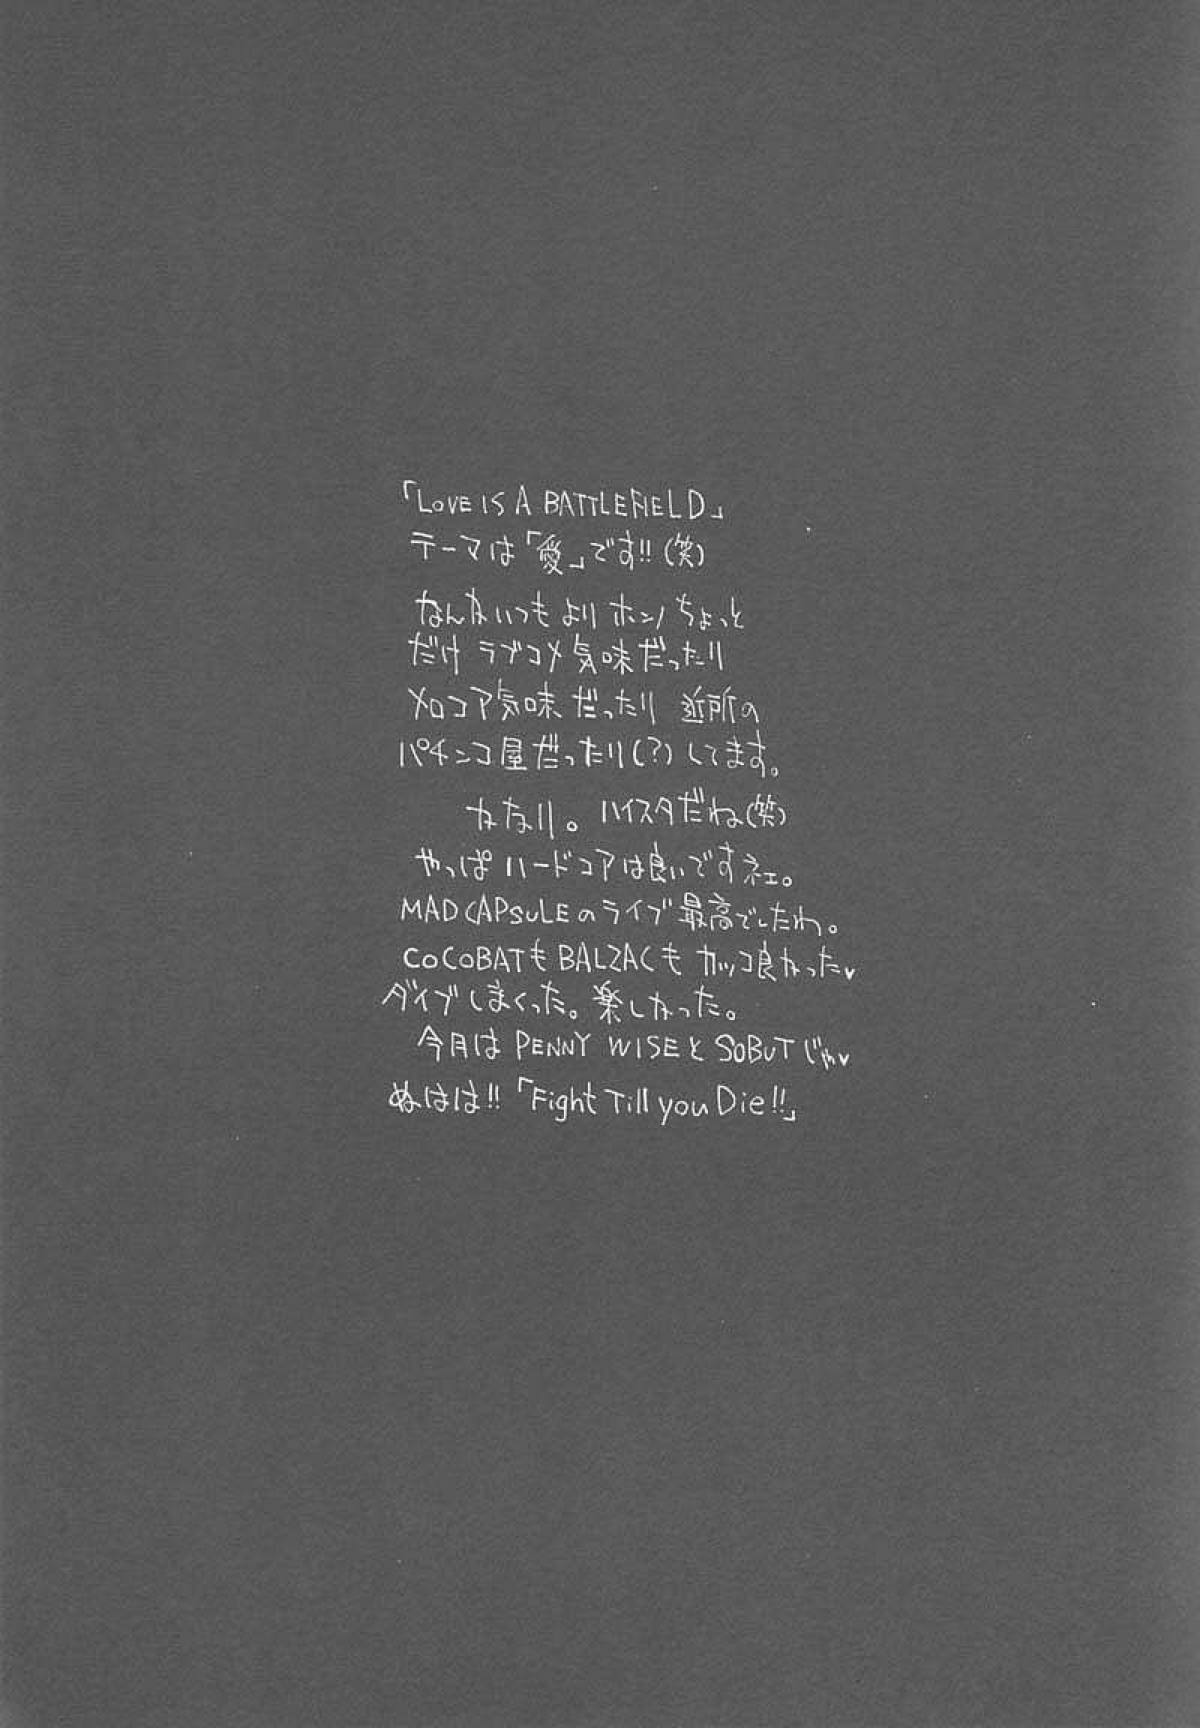 「LOVE IS A BATTLEFIELD」
テーマは「愛」です!!(笑)
なんかいつもより ホンノちょっと
だけ ラブコメ気味だったり
メロコア気味だったり 近所の
パチンコ屋だったり(?)してます。
かなり。ハイスタだね(笑)
やっぱハードコアは良いですネェ。
MAD CAPSULEのライブ最高でしたわ。
COCOBATもBALZACも カッコ良かった♥
ダイブしまくった。楽しかった。
今月は PENNY WISEと SOBUTじゃ♥
ぬはは!!「Fight Till you Die!!」